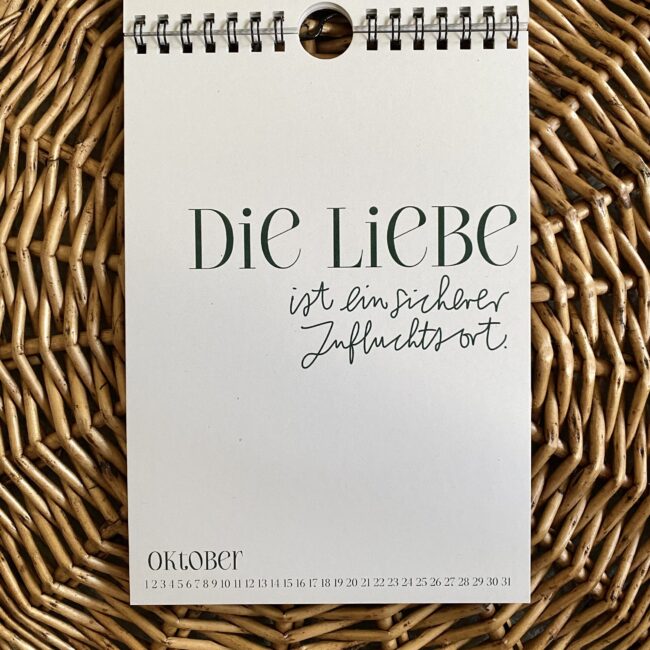 Die Liebe
ist ein sicherer
Zufluchtsort.
Oktober
1 2 3 4 5 6 7 8 9 10 11 12 13 14 15 16 17 18 19 20 21 22 23 24 25 26 27 28 29 30 31